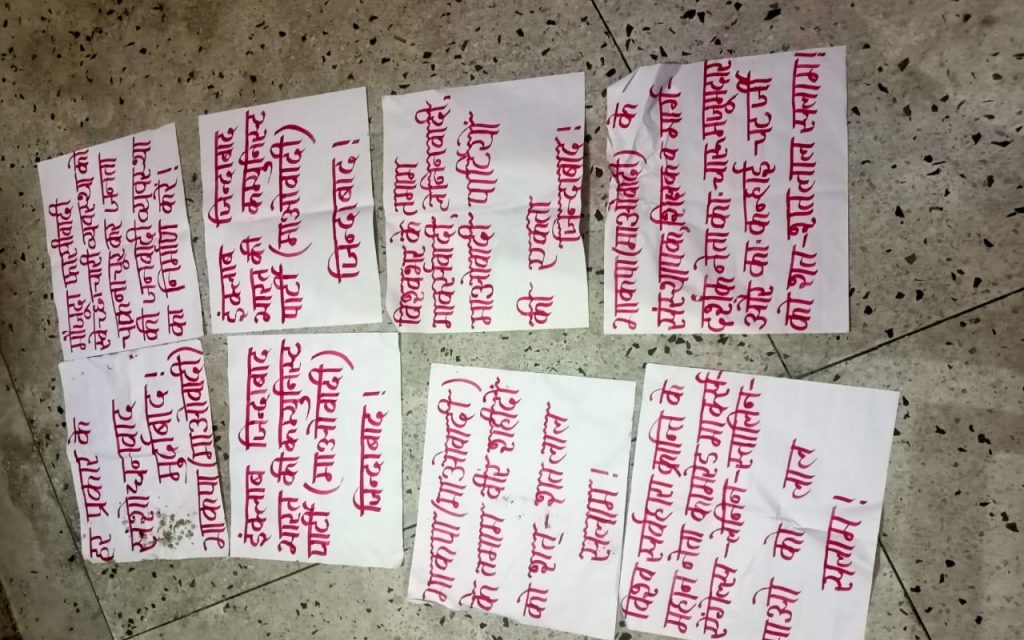 मौजूदा फासीवादी
स्वेच्छाचारी व्यवस्था को
चकनाचूर कर जनता
की जनवादी व्यवस्था
का निर्माण करें!
इंक्लाब जिन्दाबाद
भारत की कम्युनिस्ट
पार्टी (माओवादी)
जिन्दाबाद!
विश्वभर के तमाम
मार्क्सवादी, लेनिनवादी,
माओवादी पार्टियों
की एकता
जिन्दाबाद!
भाकपा(माओवादी) के
संस्थापक, शिक्षक व मार्ग
दर्शक नेता का. चारू मजूमदार
और का. कन्हाई चटर्जी
को शत-शत लाल सलाम!
हर प्रकार के
संशोधनवाद
मुर्दाबाद!
भाकपा(माओवादी)
इंक्लाब जिन्दाबाद
भारत की कम्युनिस्ट
पार्टी (माओवादी)
जिन्दाबाद!
भाकपा(माओवादी)
के तमाम वीर शहीदों
को शत्-शत लाल
सलाम!
विश्व सर्वहारा क्रान्ति के
महान नेता कामरेड मार्क्स-
एंगेल्स-लेनिन-स्तालिन-
माओ को लाल
सलाम!